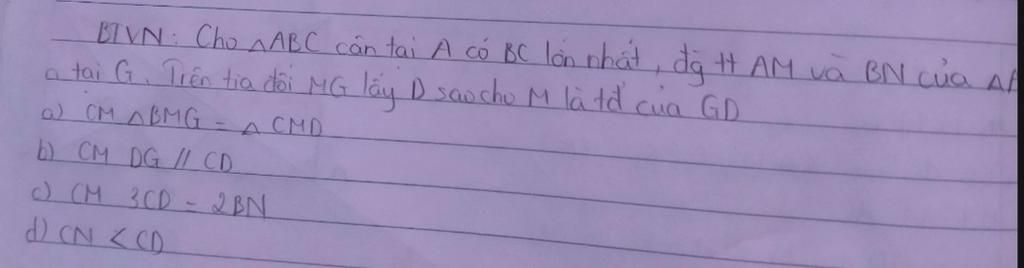 BTVN: Cho △ABC cân tại A có BC lớn nhất, đg tt AM và BN của △A
a tại G. Trên tia đối MG lấy D sao cho M là tđ của GD
a) CM △BMG = △CMD
b) CM DG // CD
c) CM 3CD = 2BN
d) CN < CD